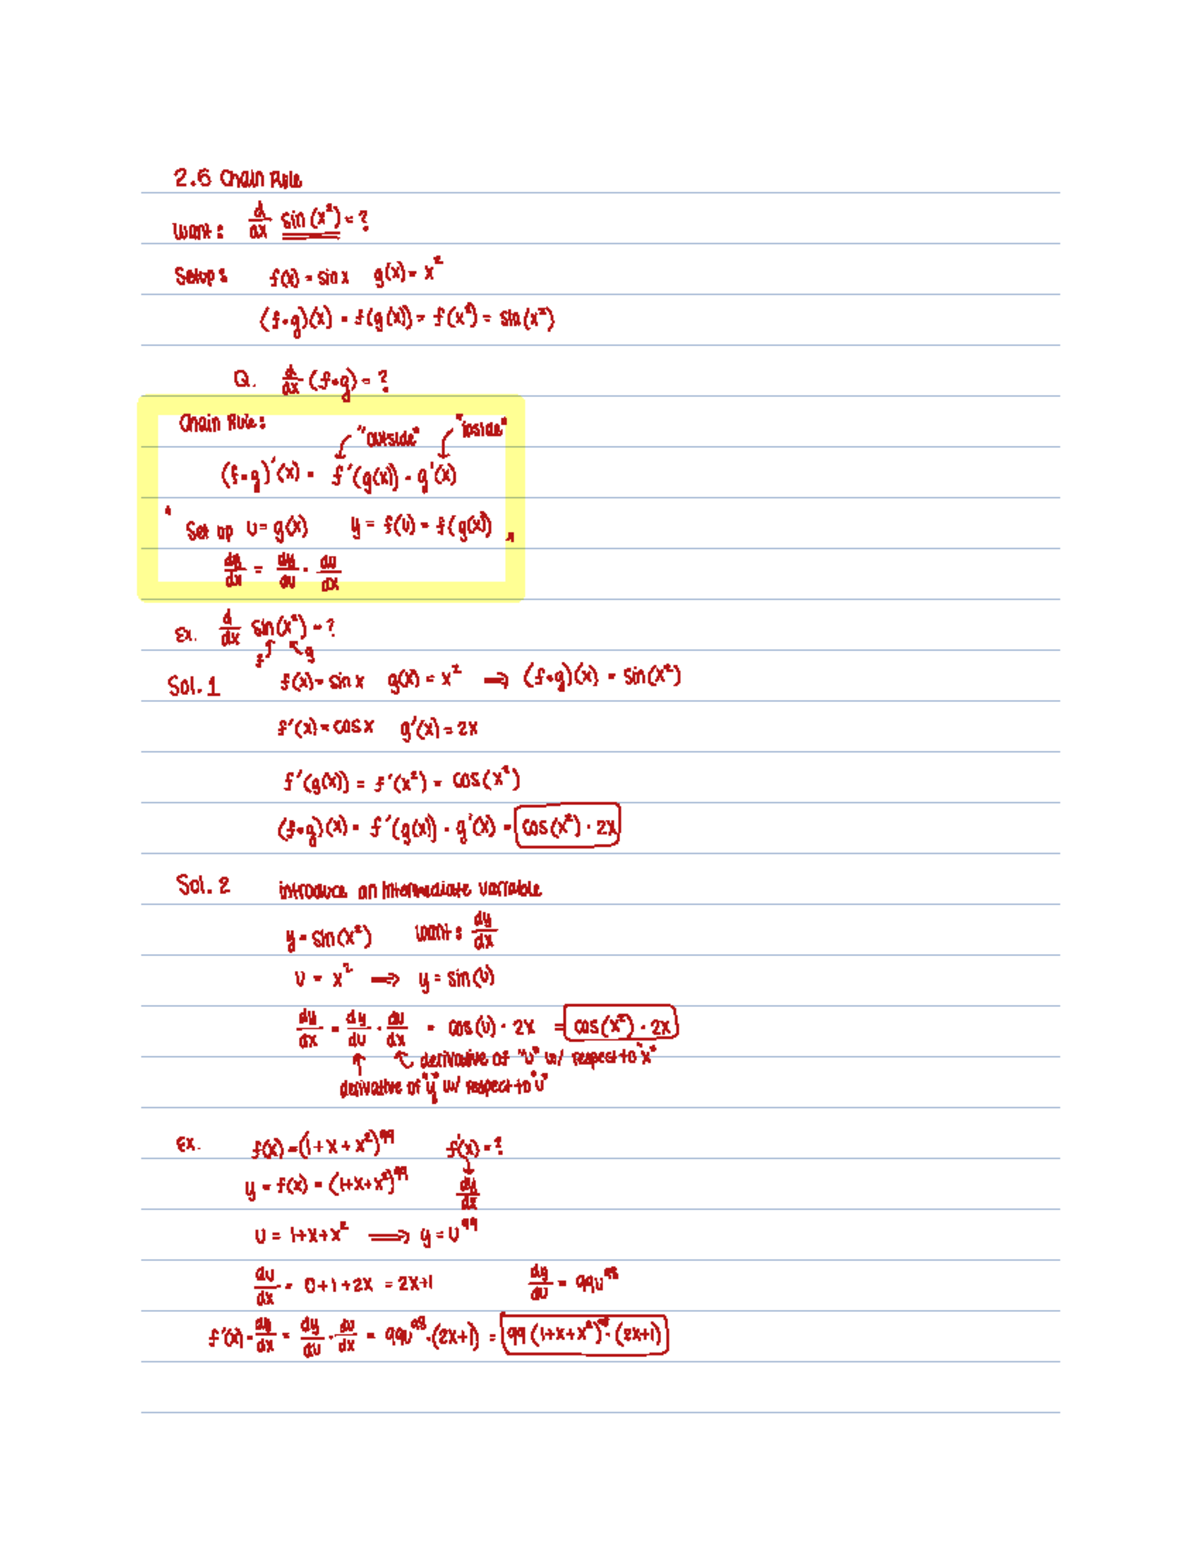 2.6 Chain Rule
Want: d/dx sin(x²) = ?
Setup: f(x) = sin x g(x) = x²
(f∘g)(x) = f(g(x)) = f(x²) = sin(x²)
Q. d/dx (f∘g) = ?
Chain Rule:
"outside" "inside"
(f∘g)'(x) = f'(g(x)) · g'(x)
" Set up u = g(x) y = f(u) = f(g(x)) "
dy/dx = dy/du · du/dx
Ex. d/dx sin(x²) = ?
f g
Sol. 1 f(x) = sin x g(x) = x² ⟹ (f∘g)(x) = sin(x²)
f'(x) = cos x g'(x) = 2x
f'(g(x)) = f'(x²) = cos(x²)
(f∘g)(x) = f'(g(x)) · g'(x) = cos(x²) · 2x
Sol. 2 introduce an intermediate variable
y = sin(x²) want: dy/dx
u = x² ⟹ y = sin(u)
dy/dx = dy/du · du/dx = cos(u) · 2x = cos(x²) · 2x
derivative of "u" w/ respect to "x"
derivative of "y" w/ respect to "u"
Ex. f(x) = (1+x+x²)⁹⁹ f'(x) = ?
y = f(x) = (1+x+x²)⁹⁹ dy/dx
u = 1+x+x² ⟹ y = u⁹⁹
du/dx = 0+1+2x = 2x+1 dy/du = 99u⁹⁸
f'(x) = dy/dx = dy/du · du/dx = 99u⁹⁸ · (2x+1) = 99(1+x+x²)⁹⁸ · (2x+1)